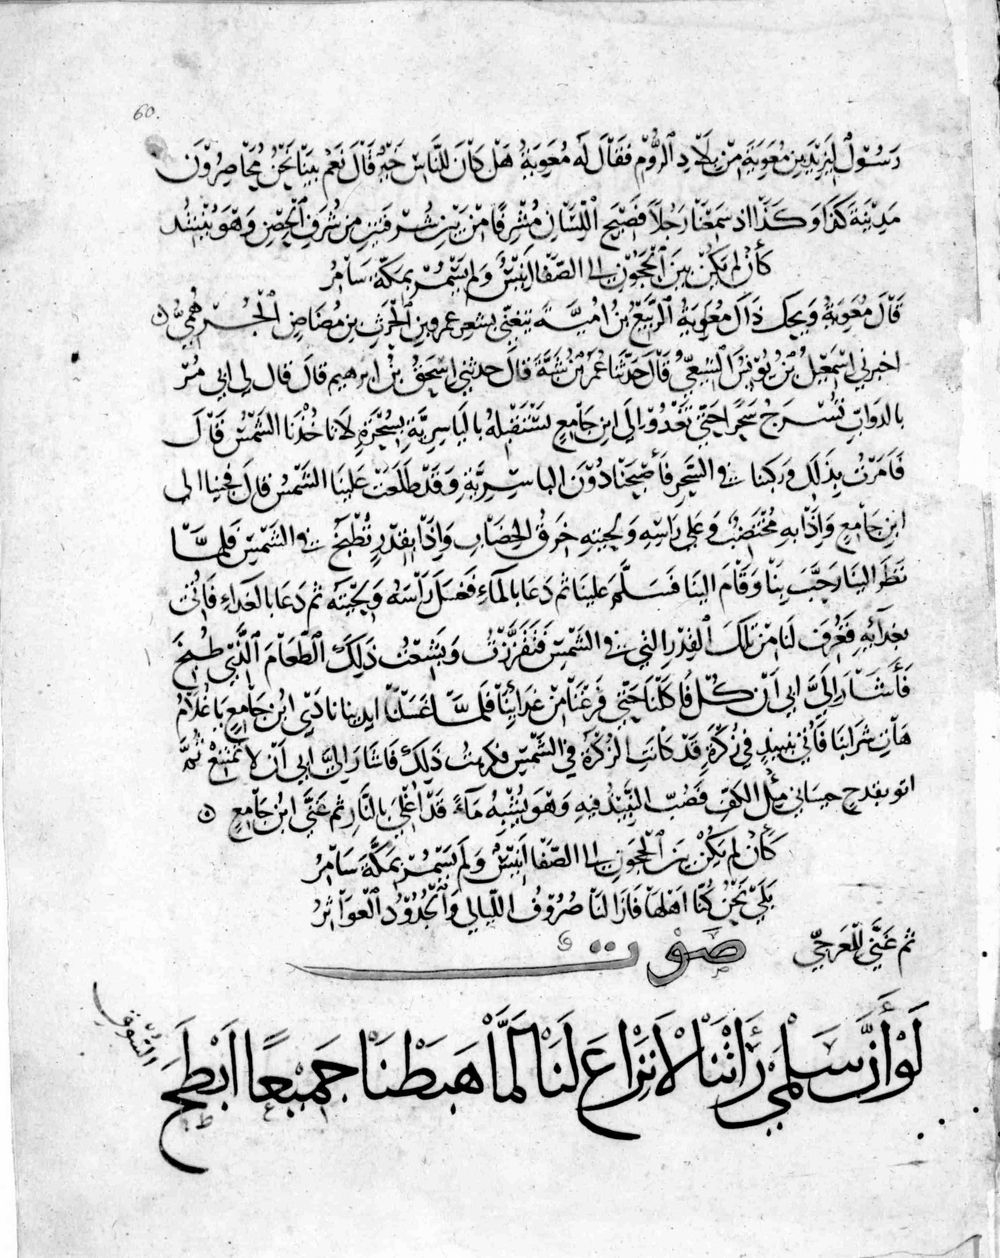 60.
رَسُوْلٌ لِيَزِيْدَ بنِ مُعَوِيَةَ مِنْ بِلَادِ الرُّوْمِ فَقَالَ لَه مُعَوِيَةُ هَلْ كَانَ لِلنَّاسِ خَبَرٌ قَالَ نَعَمْ بَيْنَا نَحْنُ مُحَاصِرُوْنَ
مَدِيْنَةَ كَذَا وَكَذَا اذ سَمِعْنَا رَجُلاً فَصِيْحَ اللِّسَانِ مُشْرِفًا مِنْ بَيْنِ شُرْفَتَيْنِ مِن شُرَفِ الْحِصْنِ وَهُوَ يُنْشِدُ
كَأَنْ لَمْ يَكُنْ بَيْنَ الْحَجُوْنِ الى الصَّفَا اَنِيْسٌ وَلَمْ يَسْمُرْ بِمَكَّةَ سَامِرُ
قَالَ مُعَوِيَةُ وَيْحَكَ ذَاكَ مُعَوِيَةُ الرَّبِيْعُ بنُ اُمَيَّةَ يَتَغَنَّى بِشِعرِ عمرو بنِ الْحٰرِثِ بنِ مُضَاضِ الْجُرْهُمِيِّ ۞
اخبرنى اسْمٰعِيْلُ بْنُ يُوْنُسَ الشِّيْعِيُّ قَالَ حَدَّثَنَا عُمَرُ بْنُ شَبَّةَ قَالَ حدثنى اِسْحٰقُ بْنُ ابرهيم قال قال لى ابى مُرْ
بالدَوَابِّ تُسْرَجُ سَحَرًا حَتّى نَغْدُوَ الَى ابنِ جَامِعٍ نَسْتَقْبِلُهُ بالياسِرِيَّةِ بِسُحْرَةٍ لَا تَاخُذْنَا الشَّمْسُ قَالَ
فَاَمَرْتُ بِذٰلِكَ وَرَكِبْنَا فى السَّحَرِ فَأَصْبَحْنَا دُوْنَ الياسِرِيَّةِ وَقَدْ طَلَعَتْ عَلَيْنَا الشَّمْسُ قال فَجِئْنَا الى
ابنِ جَامِعٍ وَاِذَا بِهِ مُخْتَضِبٌ وَعَلى رَاسِهِ وَلِحْيَتِهِ خِرَقُ الخِضَابِ وَاِذَا بِقِدْرٍ تُطْبَخُ فى الشَّمْسِ فَلَمَّا
نَظَرَ الَيْنَا رَحَّبَ بِنَا وَقَامَ الَيْنَا فَسَلَّمَ عَلَيْنَا ثم دَعَا بالمَاءِ فَغَسَلَ رَأْسَهُ وَلِحْيَتَه ثم دَعَا بالغَدَاءِ فَاُتِىَ
بغَدَائِهِ فَغُرِفَ لَنَا مِنْ تِلكَ الْقِدْرِ التى فى الشَّمْسِ فَتَقَزَّزْتُ وَبَشِعْتُ ذٰلِكَ الطَّعَامَ الَّذِى طُبِخَ
فَأَشَارَ اِلَىَّ ابِى اَن كُلْ فَاَكَلْنَا حَتّى فَرَغْنَا مِنْ غَدَائِنَا فَلَمَّا غَسَلْنَا ايدينا نادَى ابنُ جَامِعٍ يَا غُلَامُ
هَاتِ شَرَابَنَا فَأُتِىَ بنبيذٍ فى زُكْرَةٍ قَدْ كَانَتِ الزُّكْرَةُ فى الشَّمْسِ فكرهت ذٰلِكَ فَاَشَارَ اِلَىَّ ابى اَنْ لا تَمْتَنِعْ ثُمَّ
اتو بقدحٍ جيشانى مِلْءِ الكفِّ فَصُبَّ النَّبِيْذُ فيهِ وَهُوَ يُشْبِهُ مَاءً قَدْ اُغْلِىَ بِالنَّارِ ثم غَنَّى ابنُ جَامِعٍ ۞
كَأَنْ لَم يَكُنْ بَيْنَ الْحَجُونِ الى الصَّفَا اَنِيْسٌ وَلَمْ يَسْمُرْ بِمَكَّةَ سَامِرُ
بَلَى نَحْنُ كُنَّا اَهْلَهَا فَاَزَالَنَا صُرُوْفُ اللَّيَالِى وَالْجُدُوْدُ الْعَوَاثِرُ
ثم غَنَّى لِلْعَرْجِىِّ صَوْت
لَوْ أَنَّ سَلْمَى رَأَتْنَا لَا نَرَاعَ لَنَا لَمَّا هَبَطْنَا جَمِيْعًا اَبْطَحَ
السُّوْقِ